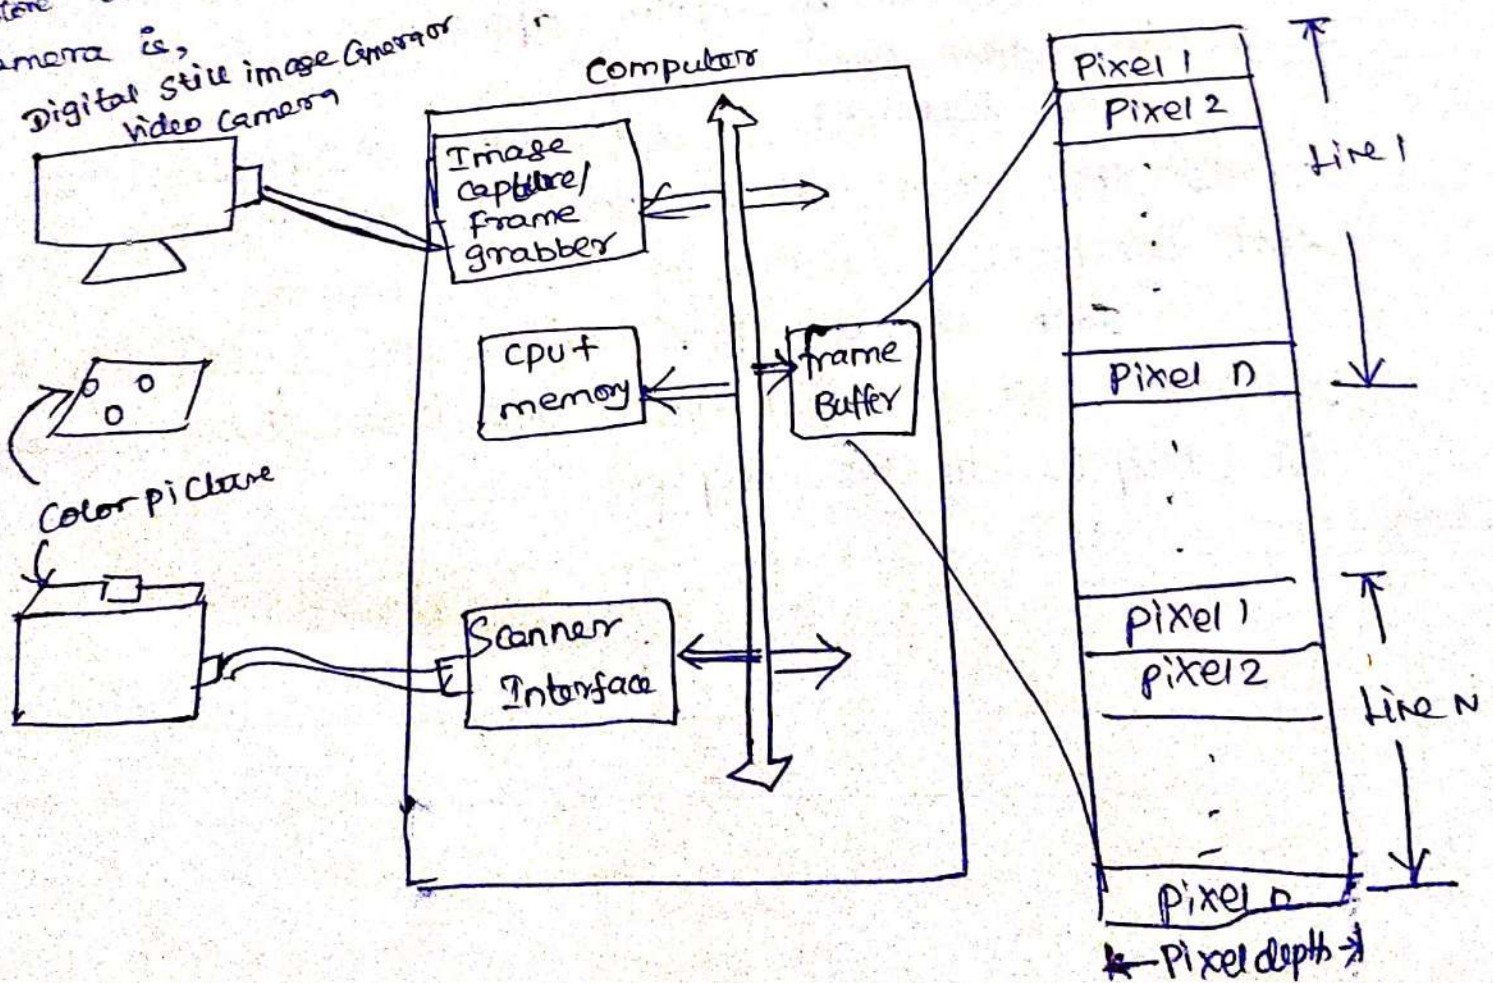 camera is,
Digital still image Camera or
video camera
Computer
Image
capture/
Frame
grabber
CPU +
memory
frame
Buffer
Color picture
Scanner
Interface
Pixel 1
Pixel 2
Line 1
Pixel n
Pixel 1
pixel 2
Line N
pixel n
Pixel depth